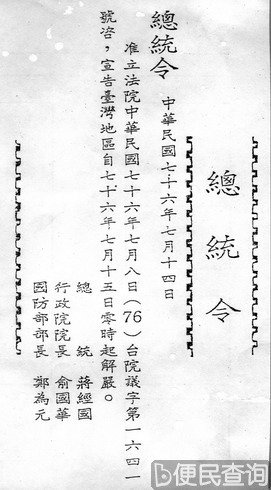 總統令
總統令 中華民國七十六年七月十四日
准立法院中華民國七十六年七月八日(76)台院議字第一六四一
號咨,宣告臺灣地區自七十六年七月十五日零時起解嚴。
總統 蔣經國
行政院院長 俞國華
國防部部長 鄭為元
b便民查询